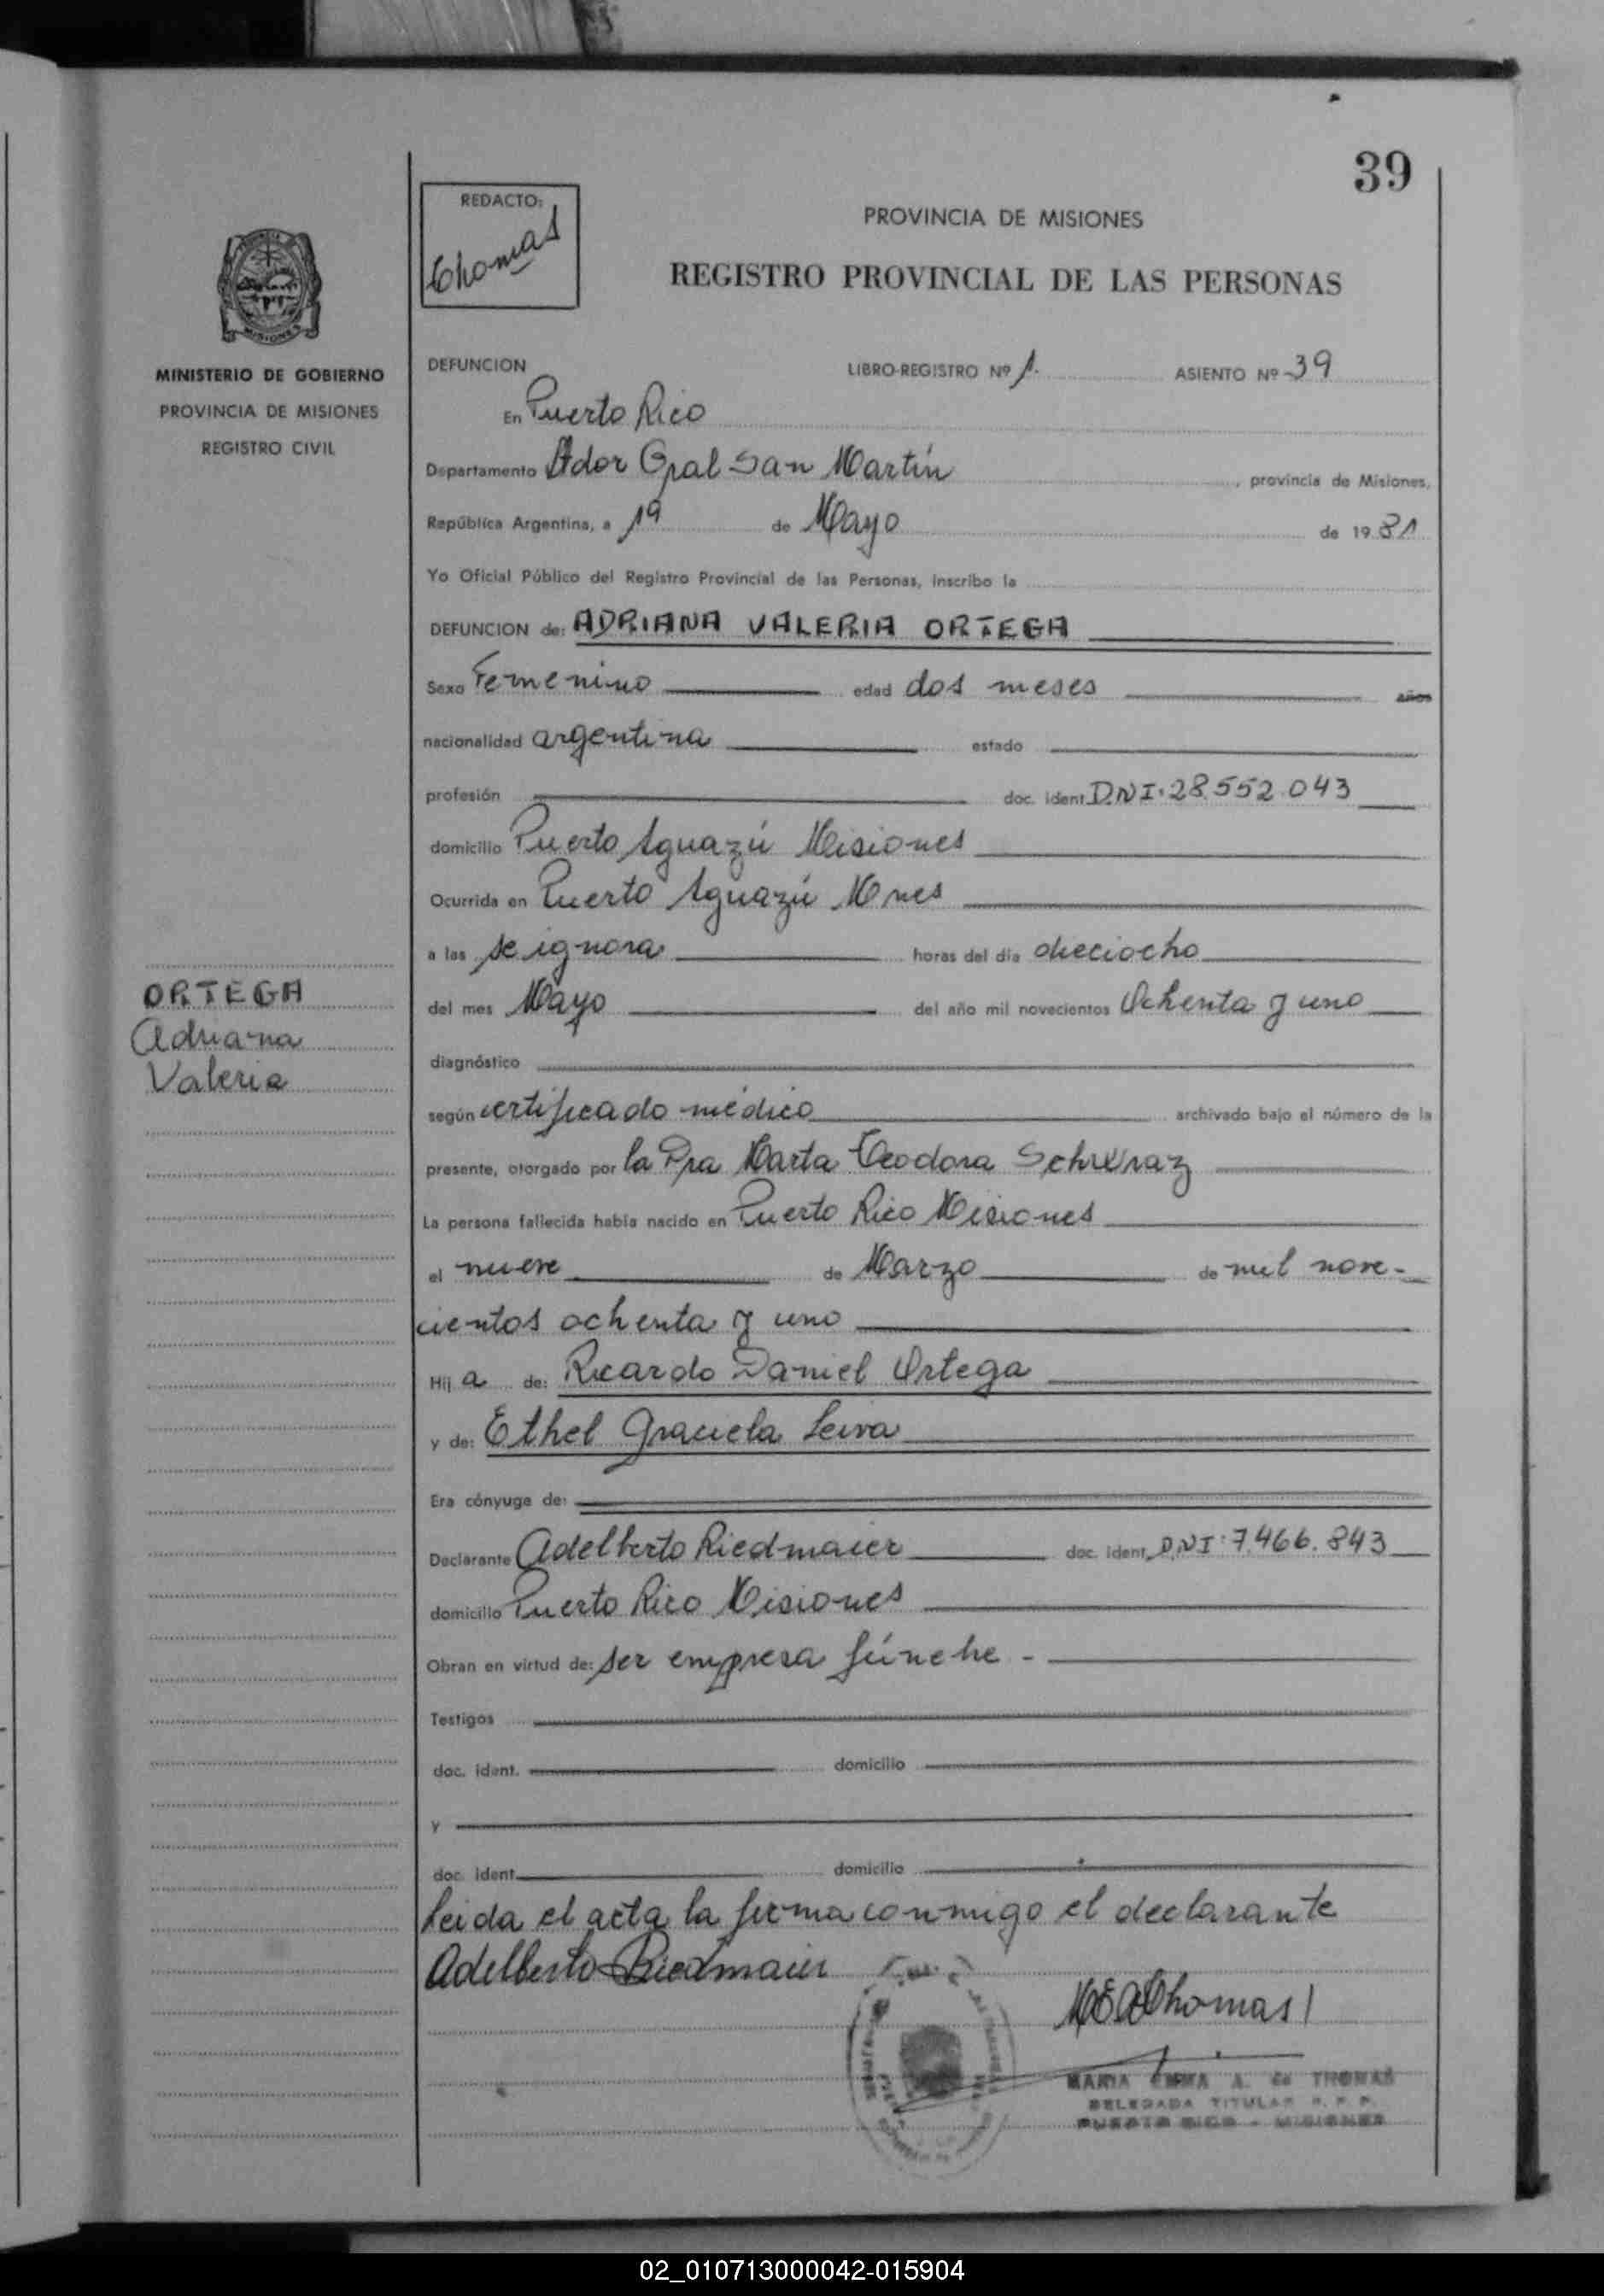 39
REDACTO:
Thomas
PROVINCIA DE MISIONES
REGISTRO PROVINCIAL DE LAS PERSONAS
MISIONES
MINISTERIO DE GOBIERNO
PROVINCIA DE MISIONES
REGISTRO CIVIL
DEFUNCION LIBRO-REGISTRO Nº 1. ASIENTO Nº 39
En Puerto Rico
Departamento Ldor Gral San Martín, provincia de Misiones,
República Argentina, a 19 de Mayo de 1981
Yo Oficial Público del Registro Provincial de las Personas, inscribo la
DEFUNCION de: ADRIANA VALERIA ORTEGA
Sexo Femenino edad dos meses años
nacionalidad argentina estado
profesión doc. ident DNI: 28.552.043
domicilio Puerto Iguazú Misiones
Ocurrida en Puerto Iguazú Mnes
a las se ignora horas del día dieciocho
del mes Mayo del año mil novecientos Ochenta y uno
diagnóstico
según certificado médico archivado bajo el número de la
presente, otorgado por la Dra Marta Teodora
La persona fallecida había nacido en Puerto Rico Misiones
el nueve de Marzo de mil nove-
cientos ochenta y uno
Hij a de: Ricardo Daniel Ortega
y de: Ethel Graciela Leiva
Era cónyuge de:
Declarante Adelberto Riedmaier doc. ident. DNI: 7.466.843
domicilio Puerto Rico Misiones
Obran en virtud de: ser empresa fúnebre -
Testigos
doc. ident. domicilio
y
doc. ident. domicilio
Leida el acta la firma conmigo el declarante
Adelberto Riedmaier
MEAThomas
MARIA EMMA A. de THOMAS
DELEGADA TITULAR R. P. P.
PUERTO RICO - MISIONES
ORTEGA
Adriana
Valeria
02_010713000042-015904